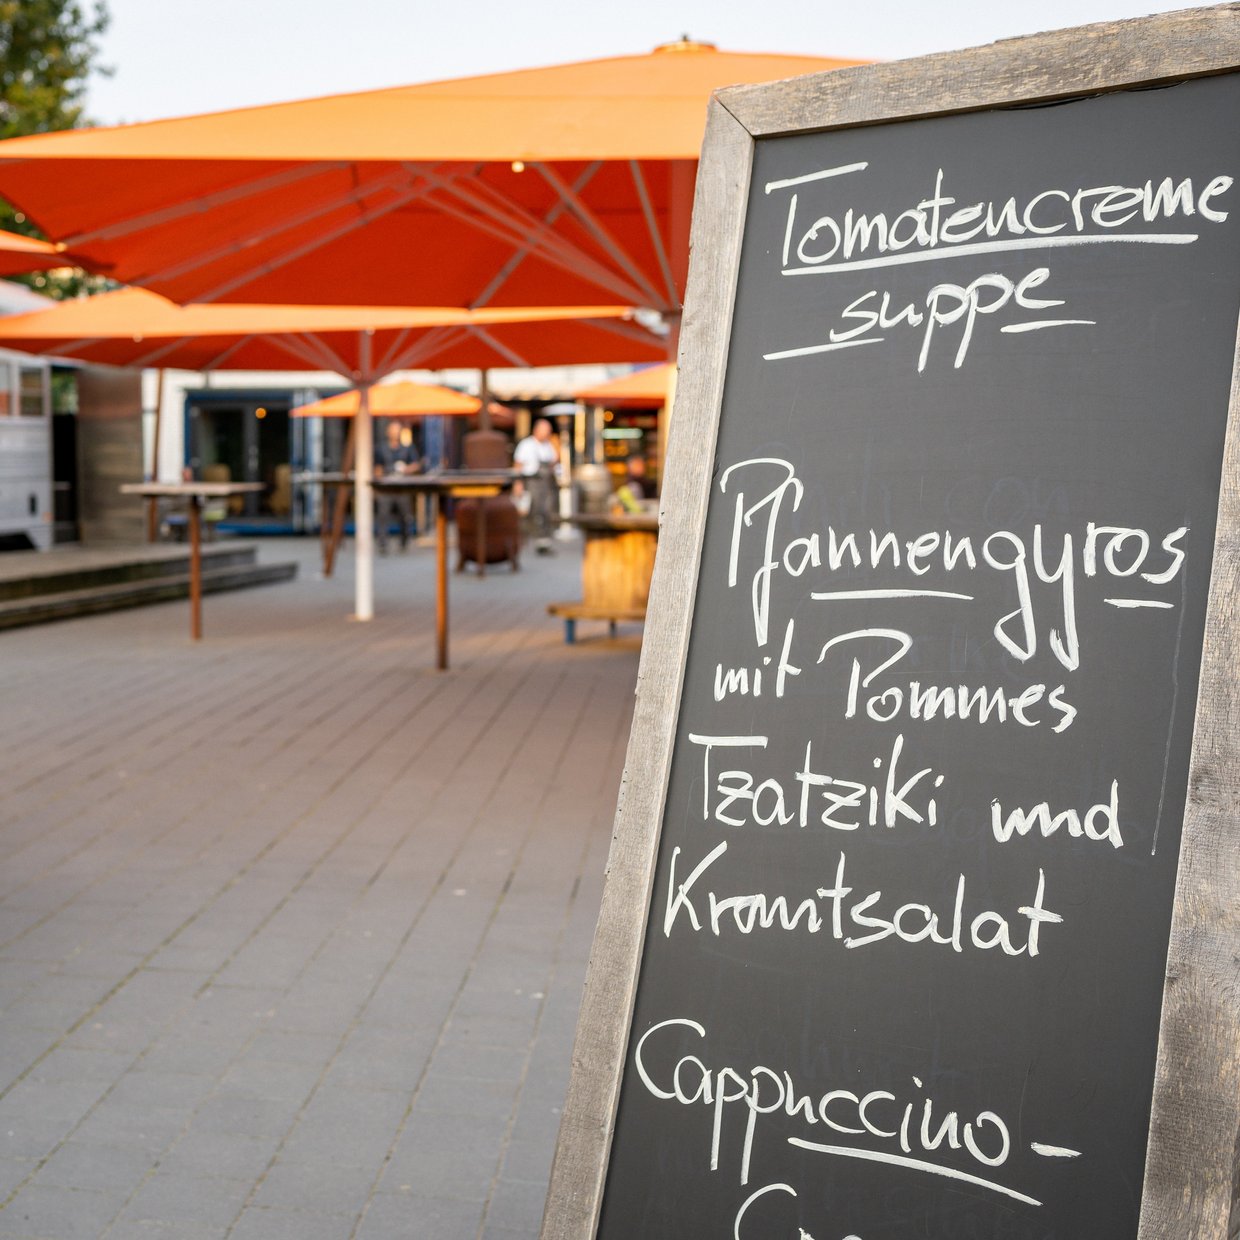 Tomatencreme
suppe
Pfannengyros
mit Pommes
Tzatziki und
Krautsalat
Cappuccino-